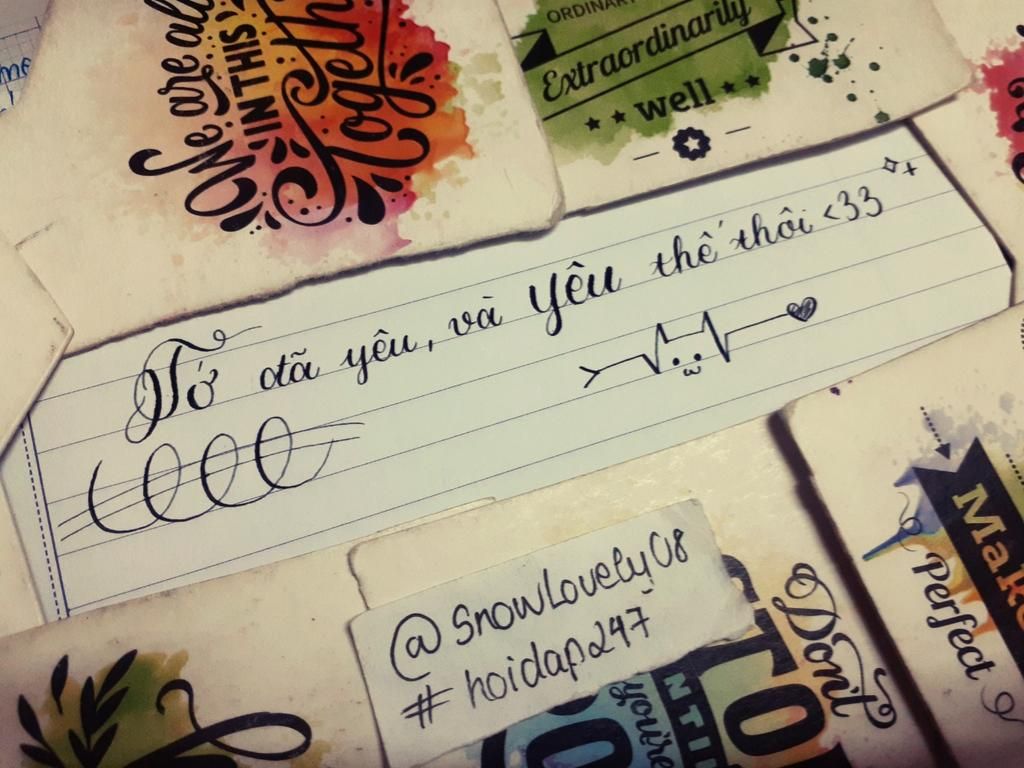 me
We are all
IN THIS
Together
ORDINARY
Extraordinarily
well
Tớ đã yêu, và yêu thế thôi <33
@SnowLovely08
#hoidap247
Don't
STO
UNTIL
you're
Make
Perfect